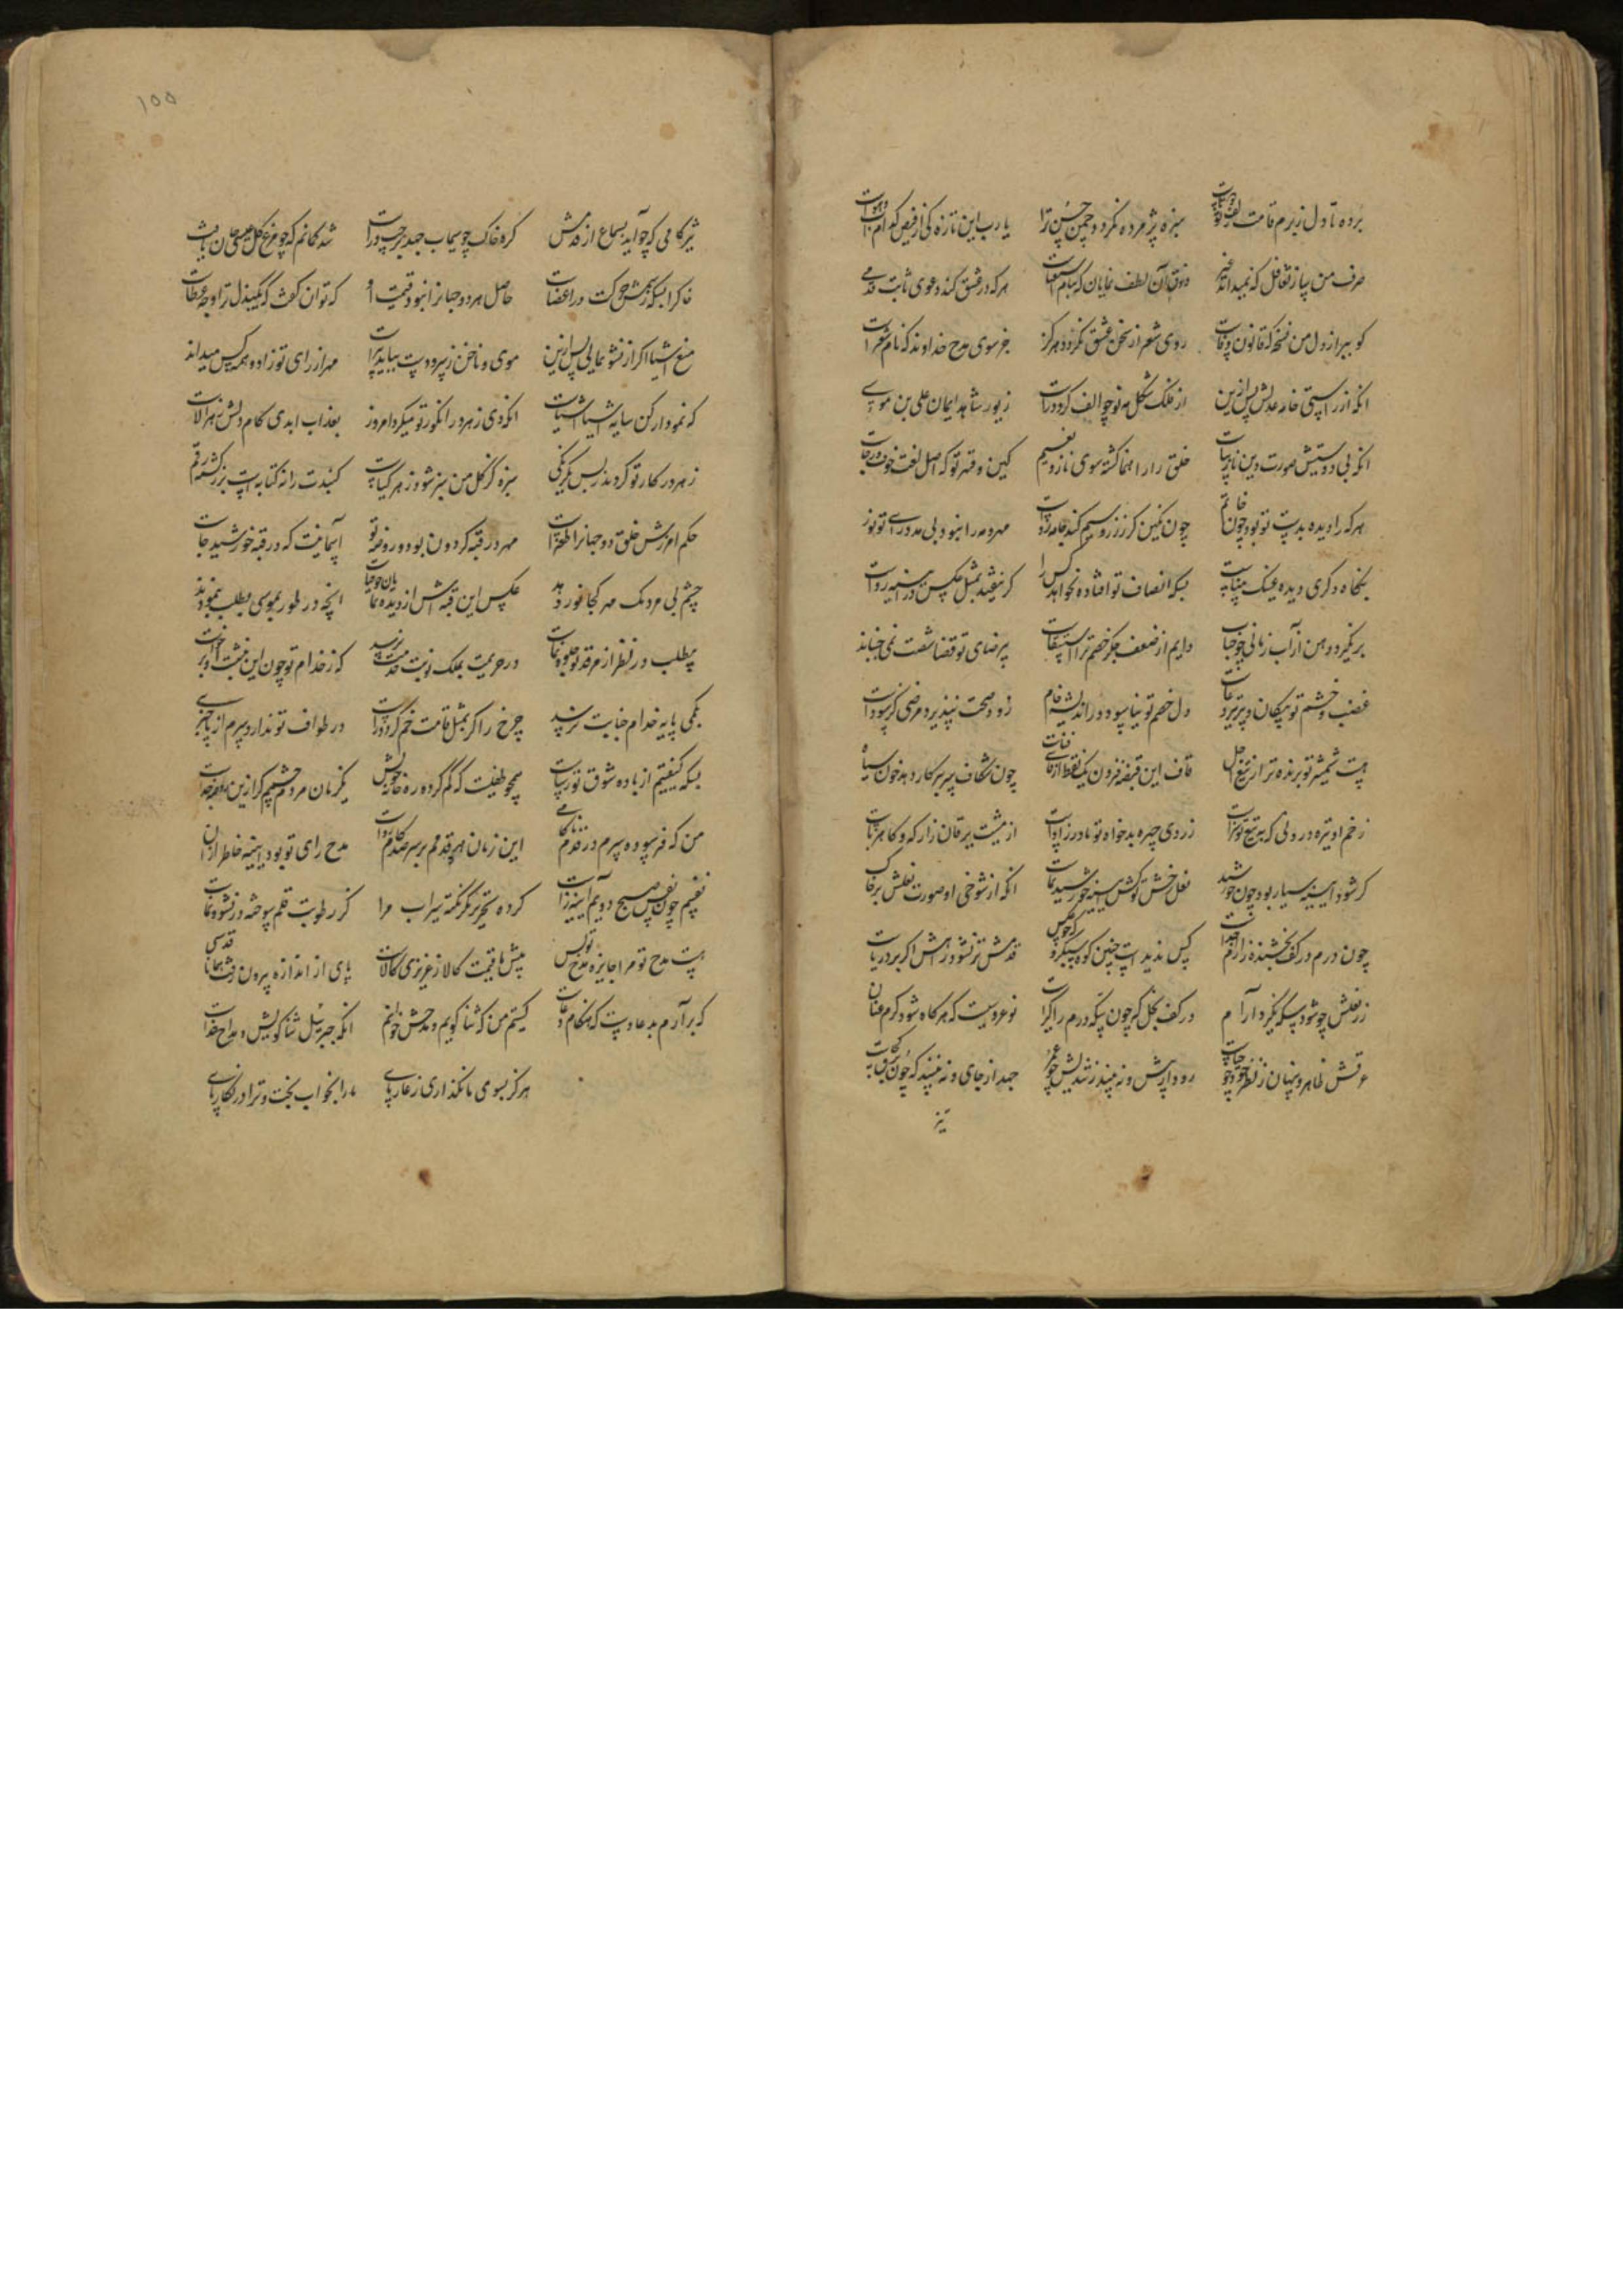 برده تا دل زبرم قامت
سبزه پژمرده نکردد چمن حسن ترا
یا رب این تازه کی از فیض کدام
صرف من ساز تغافل که نمیداند غیر
ذوق آن لطف نمایان که
هر که در عشق کند دعوی ثابت قدمی
کو ببر از دل من نسخه که قانون
روی شعر از سخن عشق نکردد هرکز
جز سوی مدح خداوند که نام
انکه از راستی خامه عدلش پس ازین
از فلک شکل مه نو چو الف کردد راست
زیور شاهد ایمان علی بن موسی
انکه بی دوستیش صورت دین نازیباست
خلق را راهنما کشته سوی ناز و نعیم
کین و قهر تو که اصل لغت خوف و رجاست
هر که را دیده بدست تو بود چون خاتم
چون نکین کر ز زر و سیم کند جامه رواست
مهر و مه را نبود بی مدد رای تو نور
بنکاه دکری دیده عینک بیناست
بسکه انصاف تو افتاده نخواهد کس را
کر نیفتد بمثل عکس در آیینه رواست
بر نکیرد دهن از آب زمانی چو حباب
دایم از ضعف جکر خصم ترا استسقاست
بر رضای تو قضا شست نمی جنباند
غضب و خشم تو پیکان و پر تیر
دل خصم تو نیاسوده ز اندیشه خام
زود صحت نپذیرد مرضی کز سوداست
هست شمشیر تو برنده تر از تیغ اجل
قاف این قبضه فزون یک نقطه از
چون شکاف سر پرکار دهد خون سیاه
زخم او تیره درونی که بتیغ تو سزاست
زردی چهره بدخواه تو مادرزاد است
از مشیت یرقان زار که و کاهرباست
کر شود آیینه سیار بود چون خورشید
نعل رخش تو کش آیینه خورشید نماست
انکه از شوخی او صورت نعلش بر خاک
چون درم در کف بخشنده
کس ندیدست چنین کوه سبکرو
قدمش تر نشود راهش اکر بر دریاست
زر نعلش چو شود سکه نکیرد آرام
در کف بخل کر چون سکه درم
نوعروسیست که هر کاه شود کرم عنان
عرقش ظاهر و پنهان ز نظر
رود از پیش و نه بیند
جهد از جای و نه بینند که چون برق کجاست
تیز
۱۵۵
تیز کامی که چو آید بسماع از قدمش
کره خاک چو سیماب جهد بر چپ و راست
شد کمانم که چو مرغ کل عیسی جان یافت
خاک را بسکه ز سمش حرکت در اعضاست
حاصل هر دو جهانرا نبود قیمت
که توان کفت که یکبذل ترا وجه عطاست
منع اشیا اکر از نشو نمایی پس ازین
موی و ناخن ز سر و دست نیاید
مهر از رای تو زاد و همه کس میداند
که نمودار کن سایه اشیا اشیاست
انکه دی زهر در انکور تو میکرد امروز
بعذاب ابدی کام دلش زهرالاست
زهر در کار تو کردند ز بس یکرنکی
سبزه کز کل من سبز شود زهر کیاست
کنبدت را نه کتابه است
حکم آمرزش خلق دو جهانرا طغراست
مهر در قبه کردون بود و روضه تو
آسمانیست که در قبه خورشید جاست
چشم بی مردمک مهر کجا نور دهد
عکس این قبه اش از دیده
انچه در طور بموسی بطلب ننمودند
بیطلب در نظر از مرقد تو جلوه نماست
در حریمت بملک نوبت خدمت نرسد
که ز خدام تو چون
بکمی پایه خدام جنابت نرسد
چرخ را کر بمثل قامت خم کردد راست
در طواف تو ندارد سرم از پا خبری
بسکه کیفیتم از باده شوق تو رساست
همچو طفلیست که کم کرده ره خانه خویش
یکزمان مردم چشمم کر ازین
من که فرسوده سرم در قدم
این زمان هر قدمم بر سر صد کام رواست
مدح رای تو بود آیینه خاطر از آن
نفسم چون نفس صبح دویم آیینه زاست
کرده تحریر مکر نکته سیراب مرا
کز رطوبت قلم سوخته در نشو و نماست
هست مدح تو مرا جایزه مدح تو بس
پیش ما قیمت کالا ز عزیزی کالاست
پای از اندازه برون رفت همانا قدسی
که بر آرم بدعا دست که هنکام دعاست
کیستم من که ثنا کویم و مدحش خوانم
انکه جبرییل ثنا کویش و مداح خداست
هرکز بسوی ما نکذاری ز عار پای
ما را بخواب بخت و ترا در نکار پای